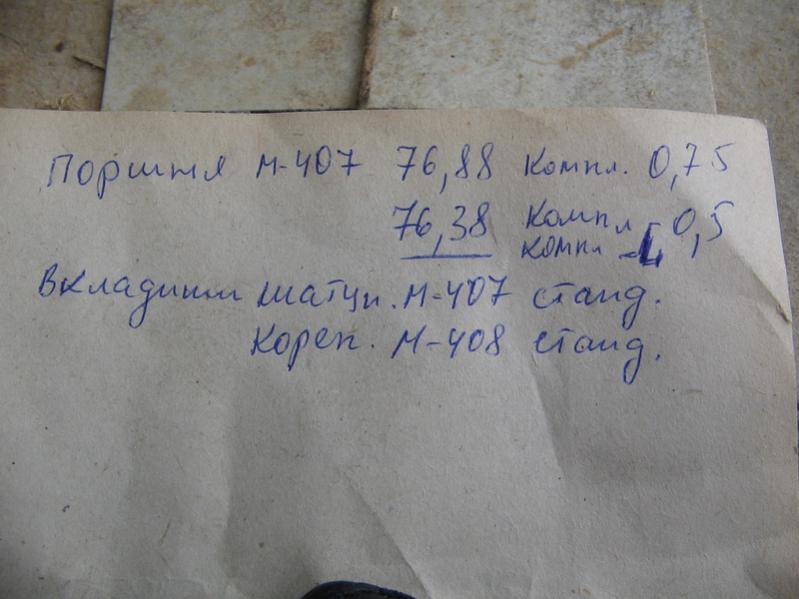 Поршня М-407 76,88 компл. 0,75
76,38 компл 0,5
компл
Вкладиши шатун. М-407 станд.
Корен. М-408 станд.